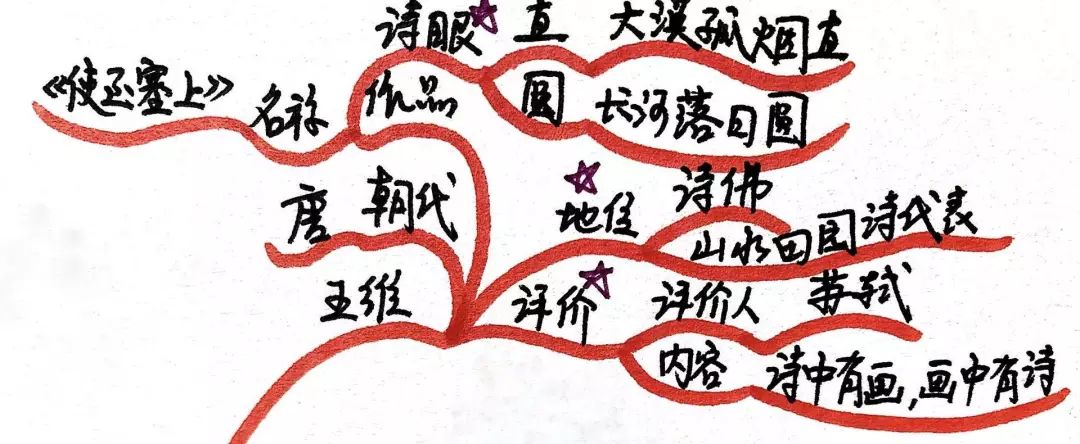 诗眼 直 大漠孤烟直
《使至塞上》 名称 作品 圆 长河落日圆
唐 朝代 地位 诗佛
山水田园诗代表
王维 评价 评价人 苏轼
内容 诗中有画,画中有诗